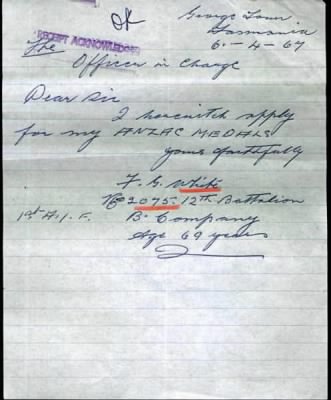 OK
George Town
Tasmania
6-4-67
RECEIPT ACKNOWLEDGED
The
Officer in Charge
Dear Sir
I herewith apply
for my ANZAC MEDALS
yours faithfully
F. G. White
No 2075. 12th Battalion
1st A.I.F. B. Company
Age 69 years